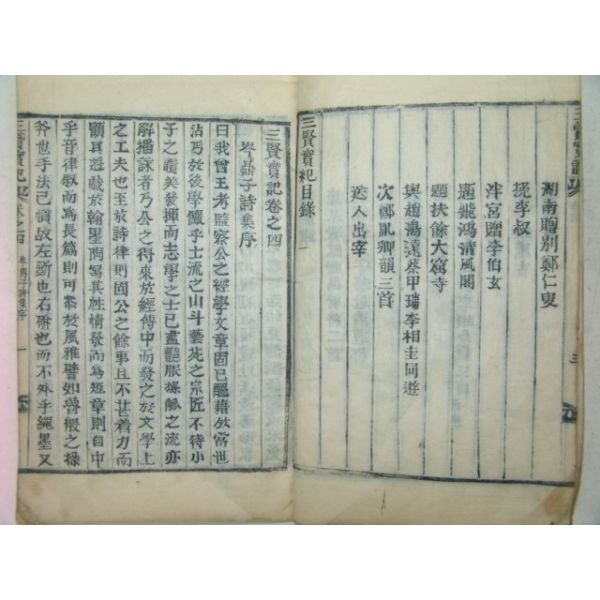 三賢實記
湖南贈別鄭仁叟
挽李叔
泮宮贈李伯玄
題飛鴻清風閣
題扶餘大寫寺
與趙陽遠蔡甲瑞李相圭同遊
次鄭虬卿韻三首
送人出宰
三賢實紀目錄
三賢實記卷之四
岑嵓子詩集序
曰我曾王考監察公之經學文章固已醞藉於當世
沾丐於後學儼乎士流之山斗藝苑之宗匠不待小
子之讚美發揮而志學之士已盡艷服操觚之流亦
解播詠者乃公之得來於經傳中而發之於文學上
之工夫也至於詩律則固公之餘事且不甚着力而
顧其遊戲於翰墨陶寫其性情發而爲短章則自中
乎音律叙而爲長篇則可叅於風雅譬如魯般之操
斧也手法已嫺故左斲也右斫也而不外乎繩墨又
三賢實記 卷之四 岑嵓子詩集序 一